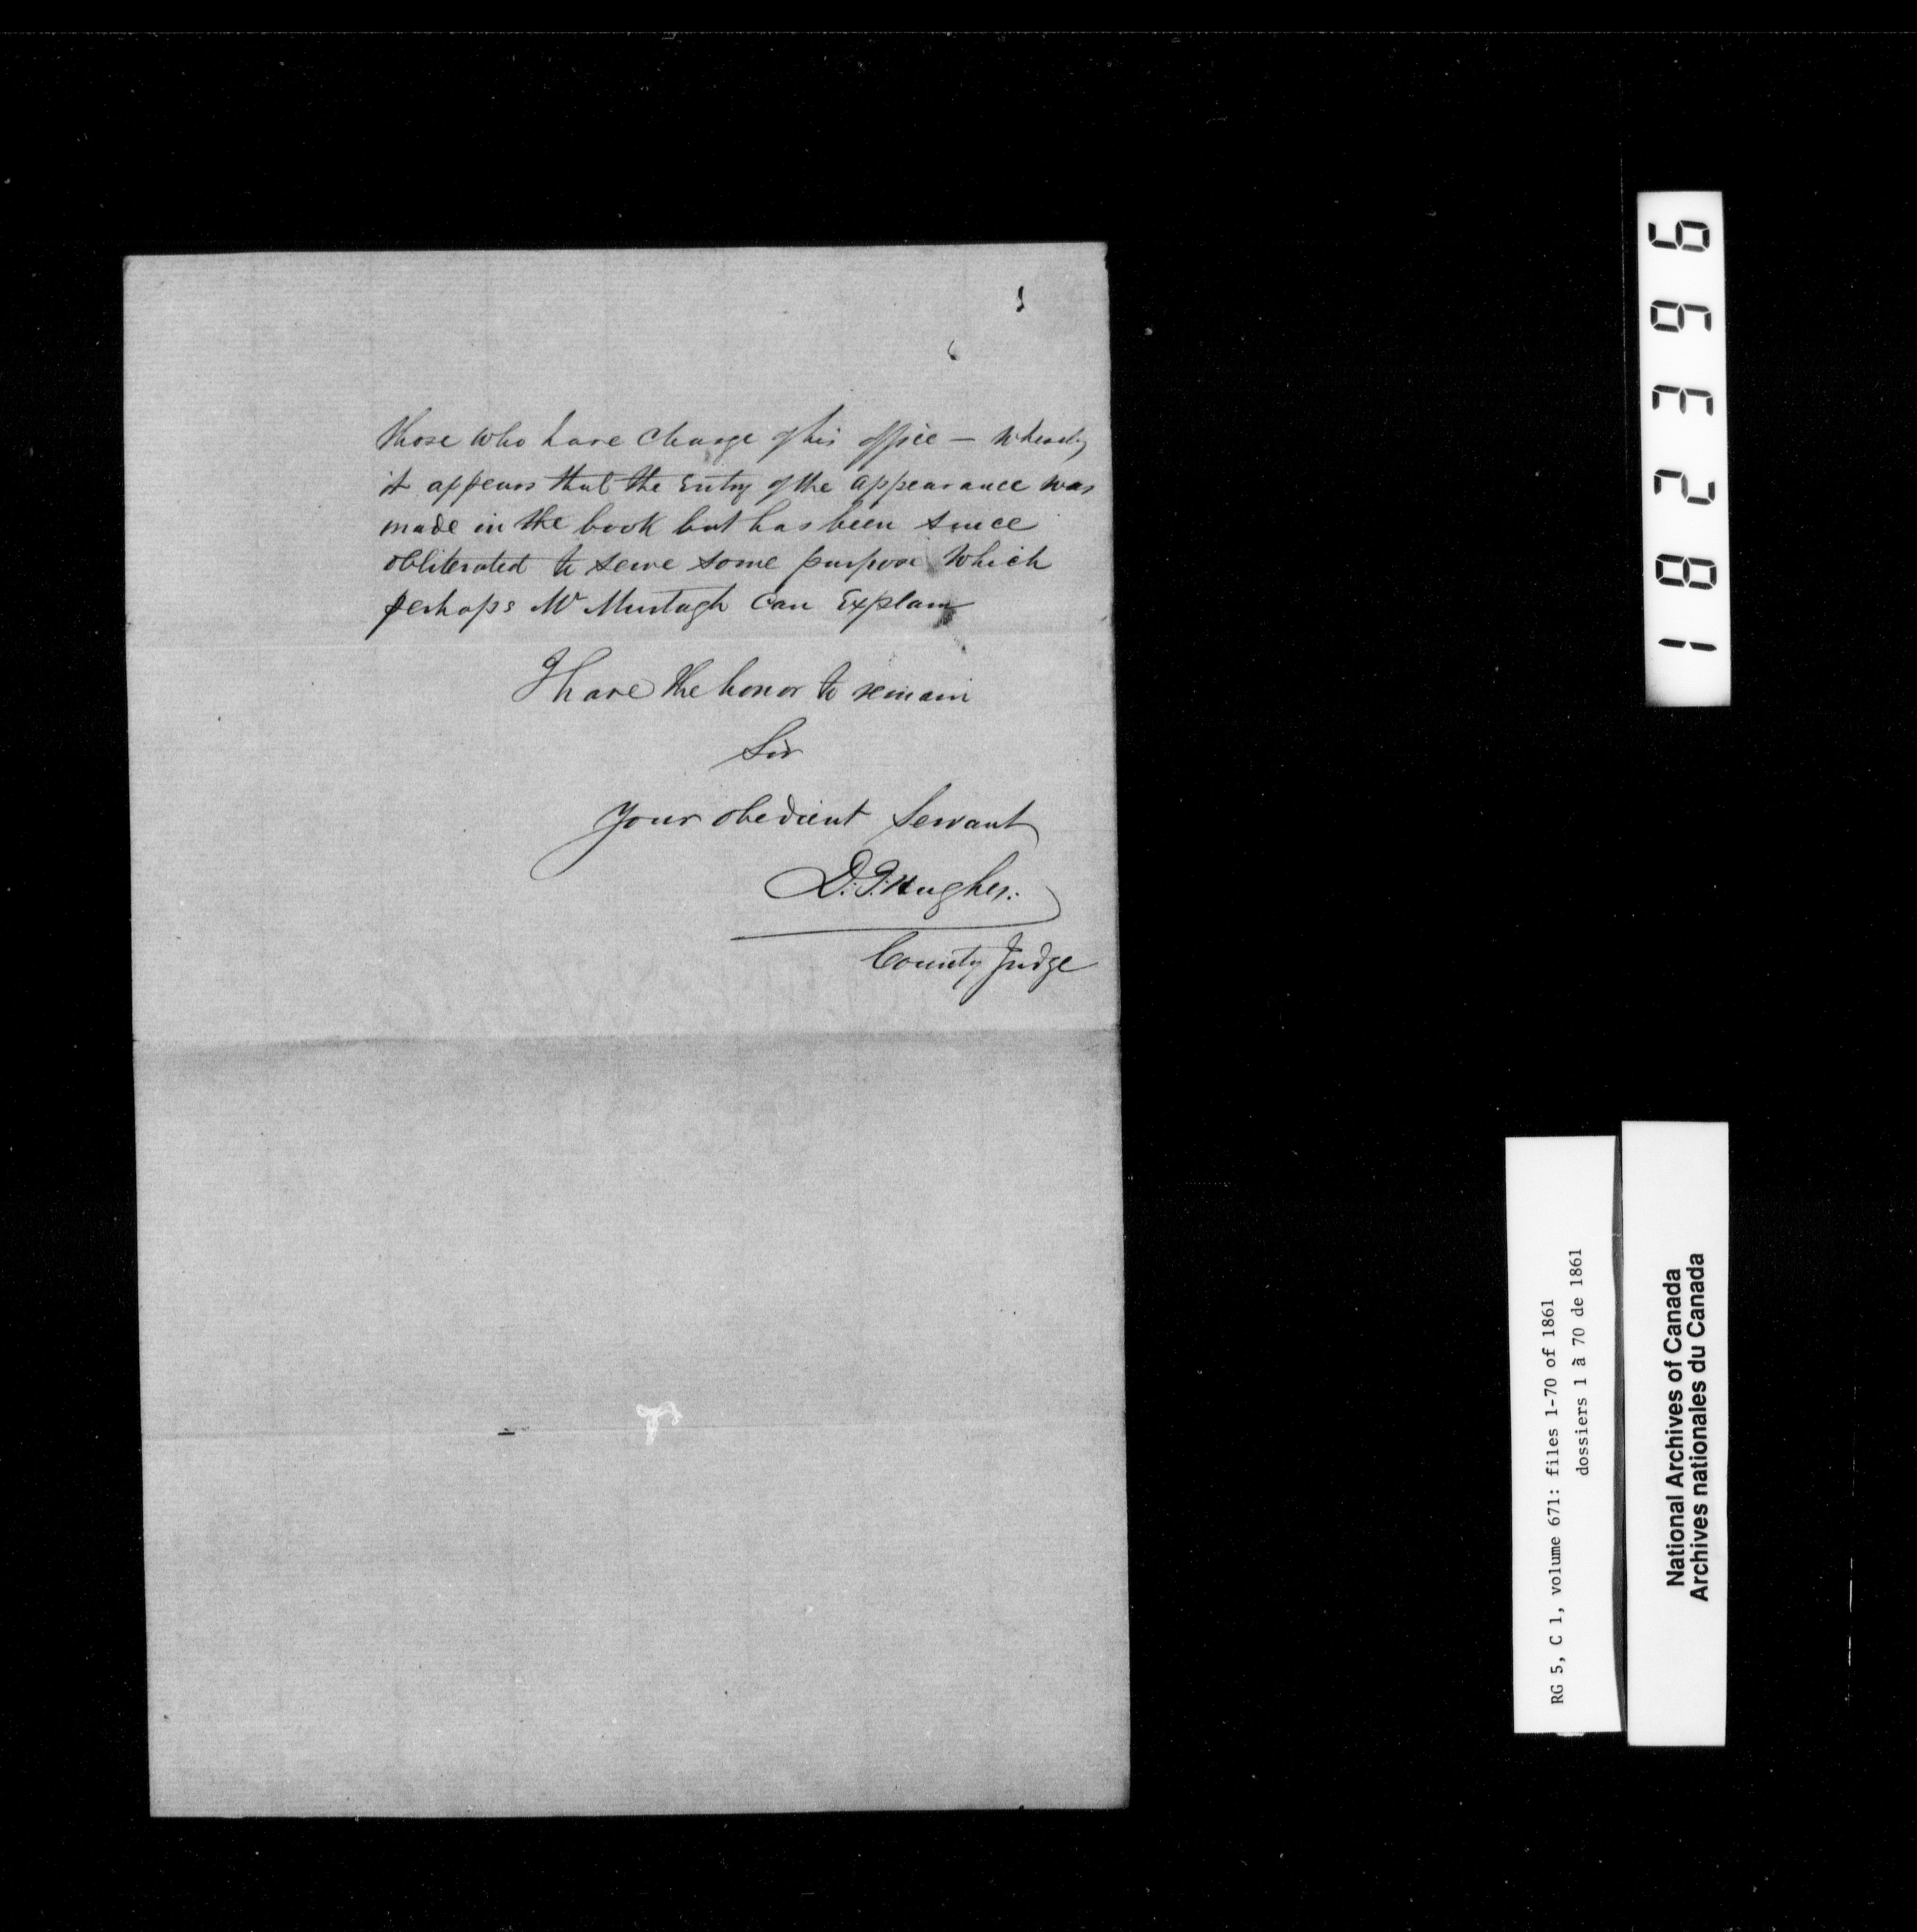 those who have charge of his office — whereby
it appears that the Entry of the appearance was
made in the book but has been since
obliterated to serve some purpose which
perhaps Mr Murtagh can Explain
I have the honor to remain
Sir
Your obedient Servant
D. J. Hughes.
County Judge
182396
RG 5, C 1, volume 671: files 1-70 of 1861
dossiers 1 à 70 de 1861
National Archives of Canada
Archives nationales du Canada